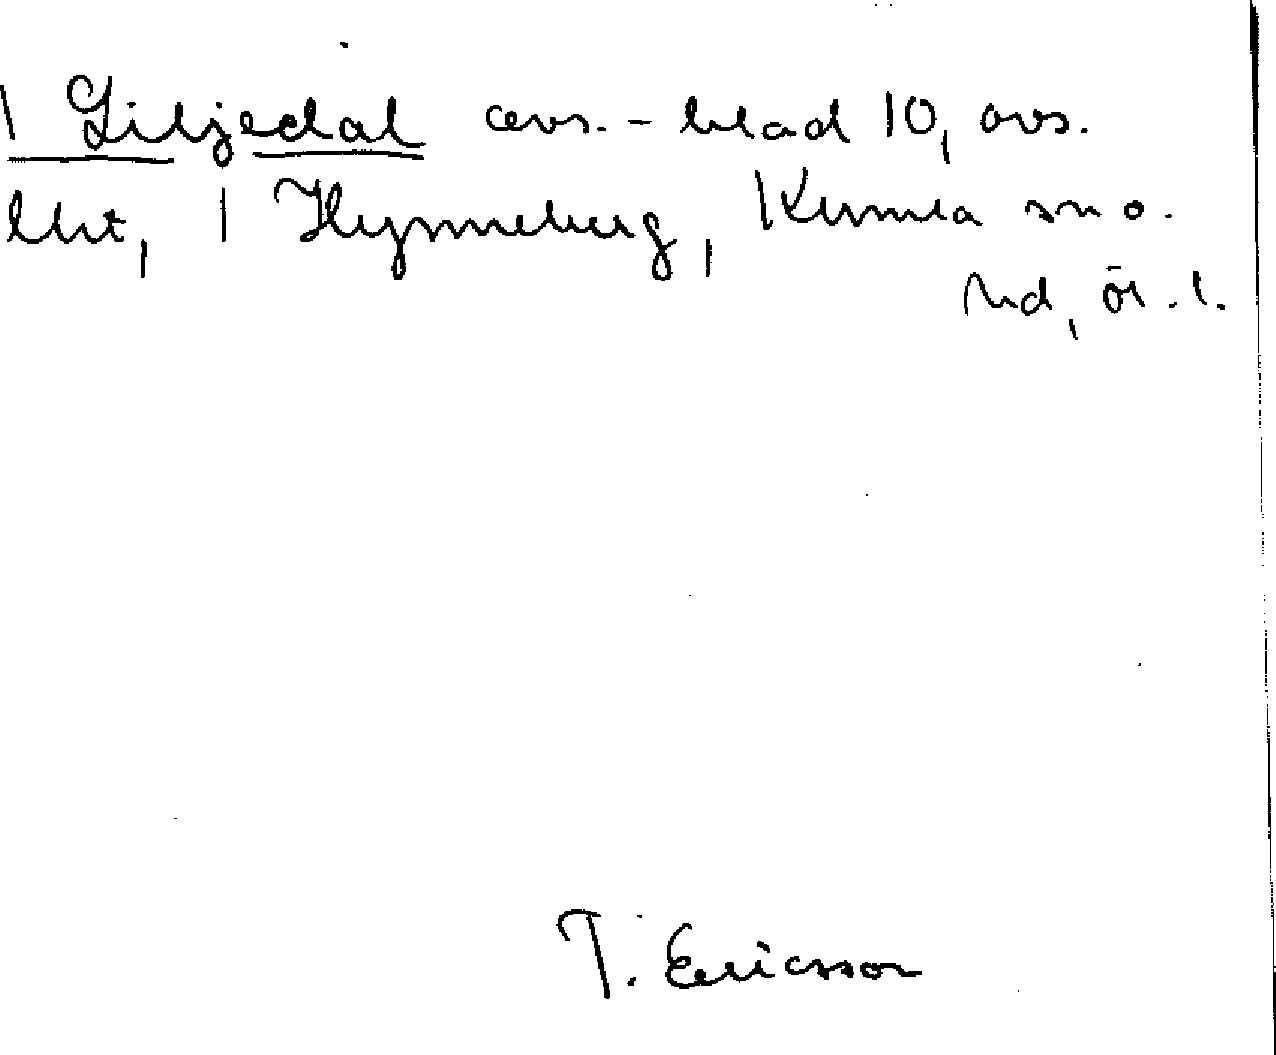 Liljedal avs.-blad 10, avs.
lht, Hynneberg, Kumla sn o.
hd, Ör. l.
T. Ericsson